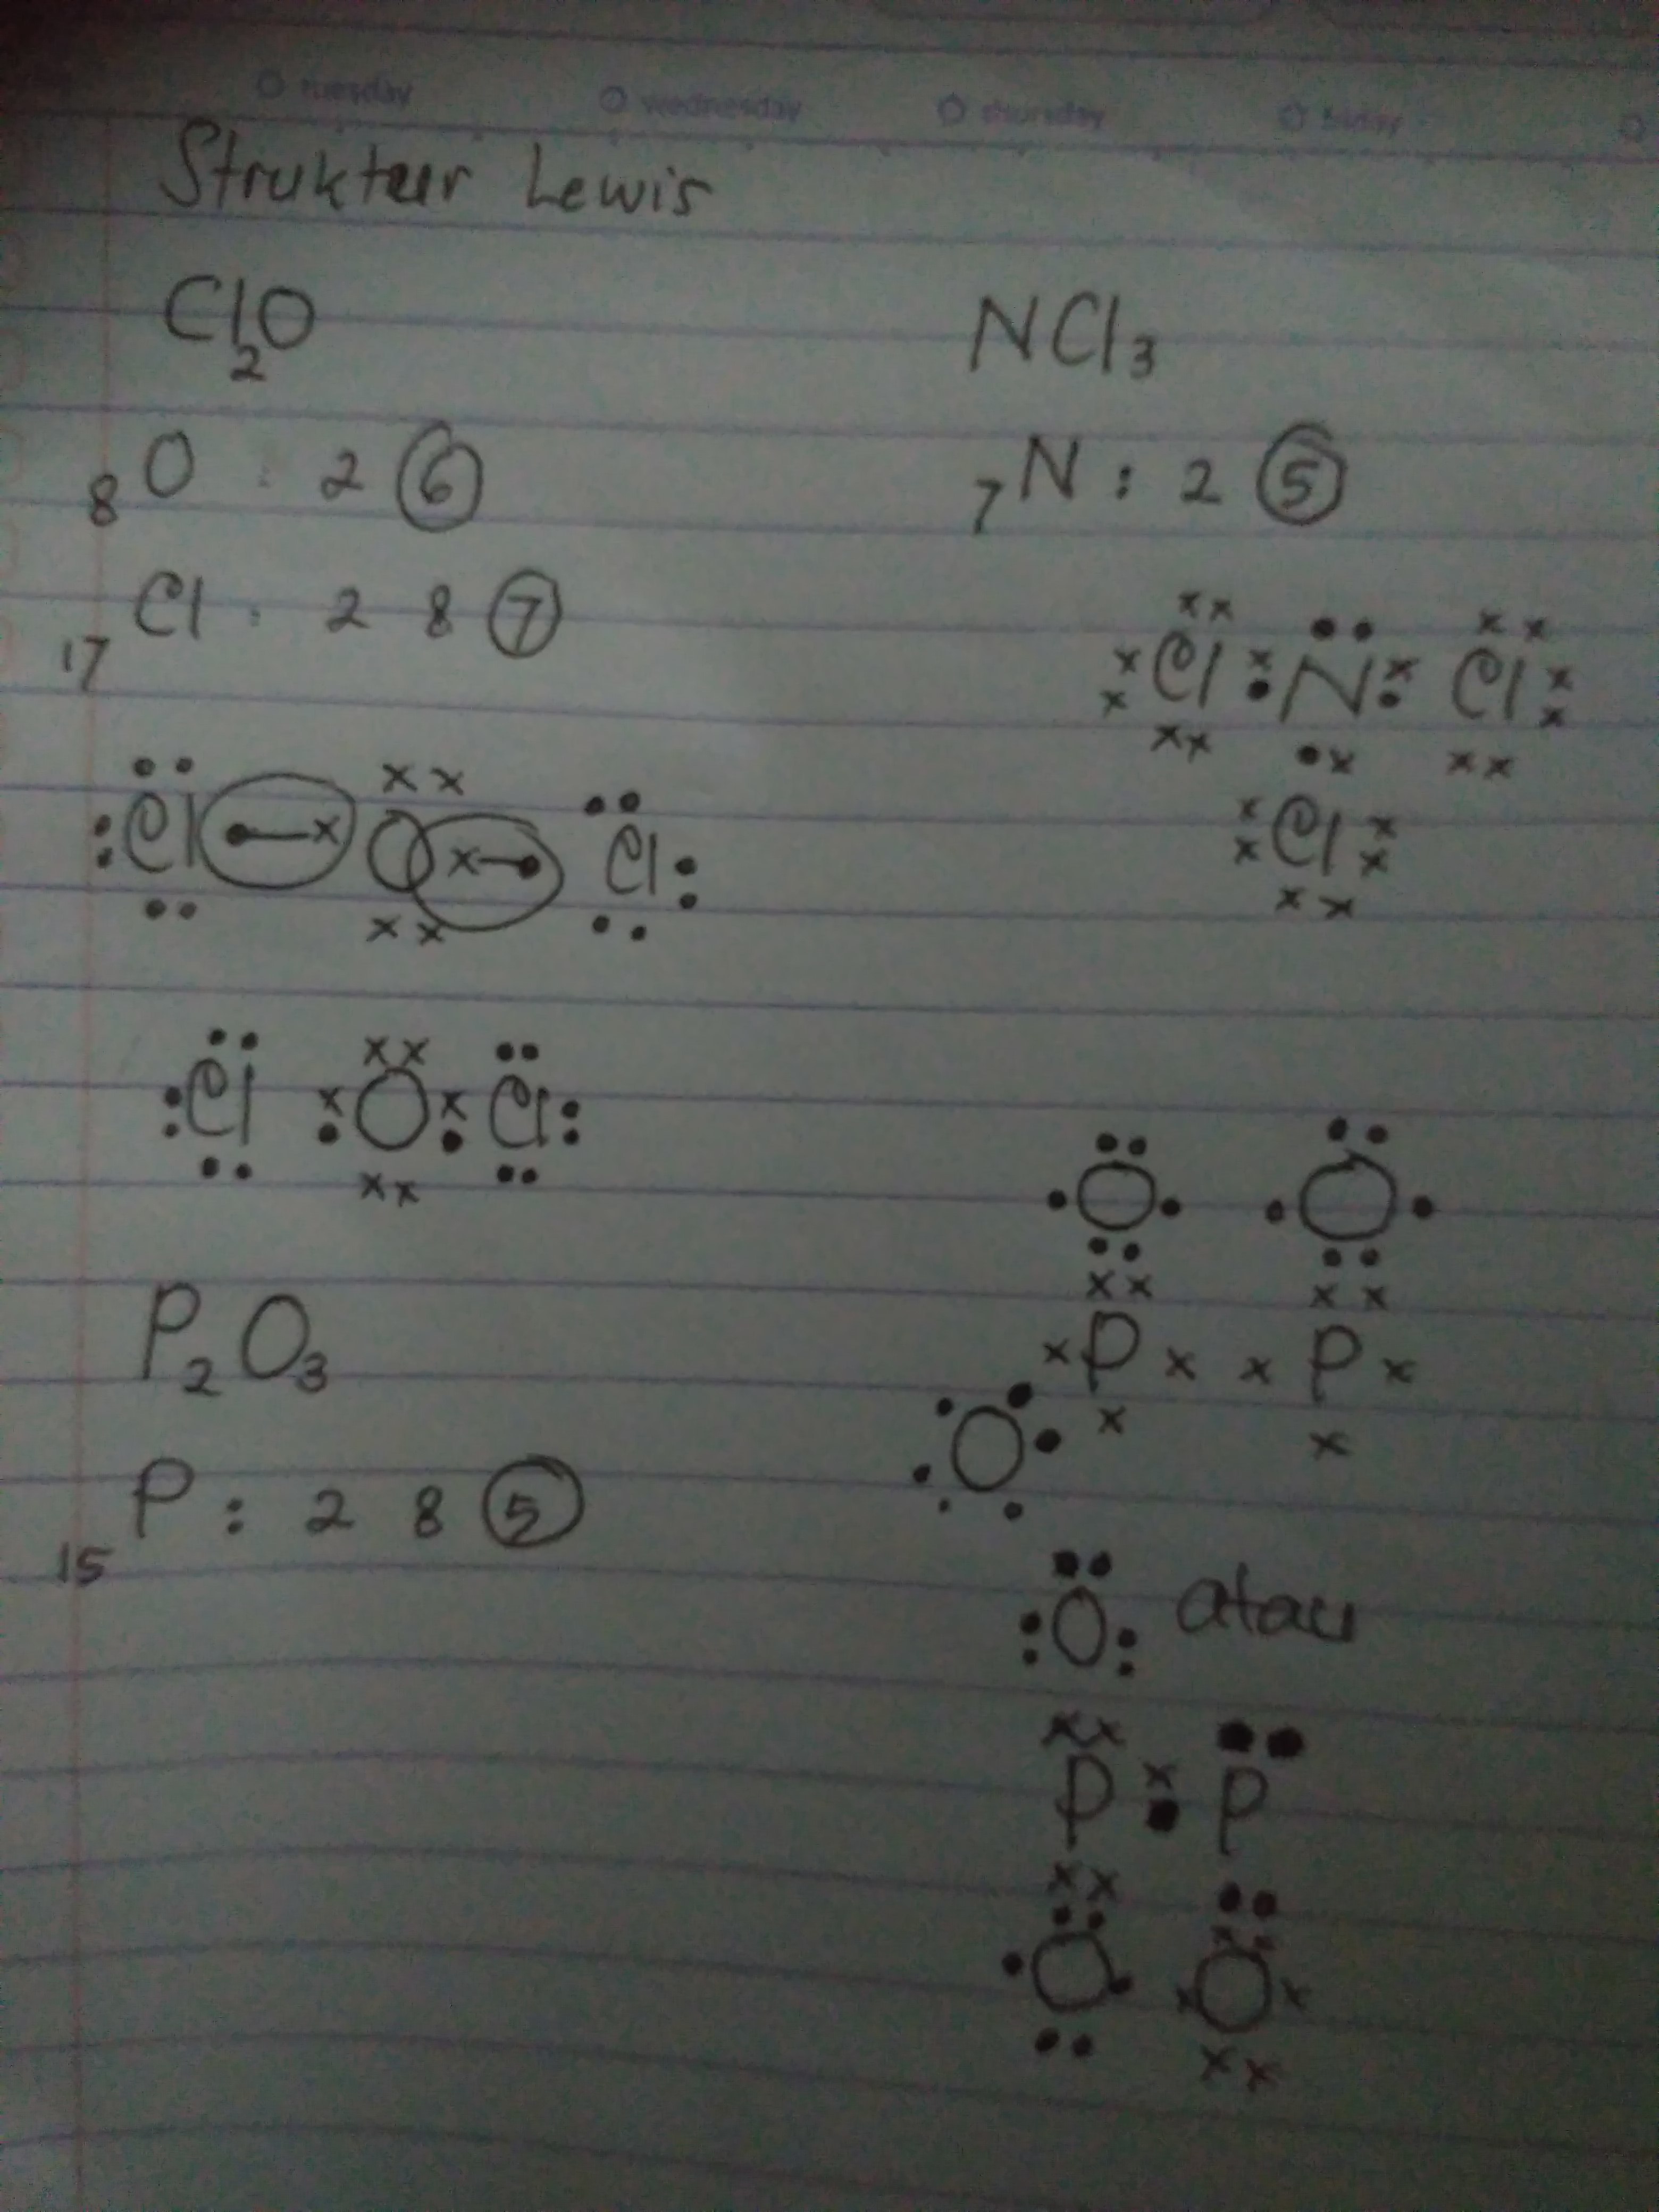 tuesday wednesday thursday friday
Struktur Lewis
Cl2O
8 O : 2 6
17 Cl : 2 8 7
Cl O Cl
Cl O Cl
P2O3
15 P : 2 8 5
NCl3
7 N : 2 5
Cl N Cl
Cl
O O
P P
O
O atau
P P
O O